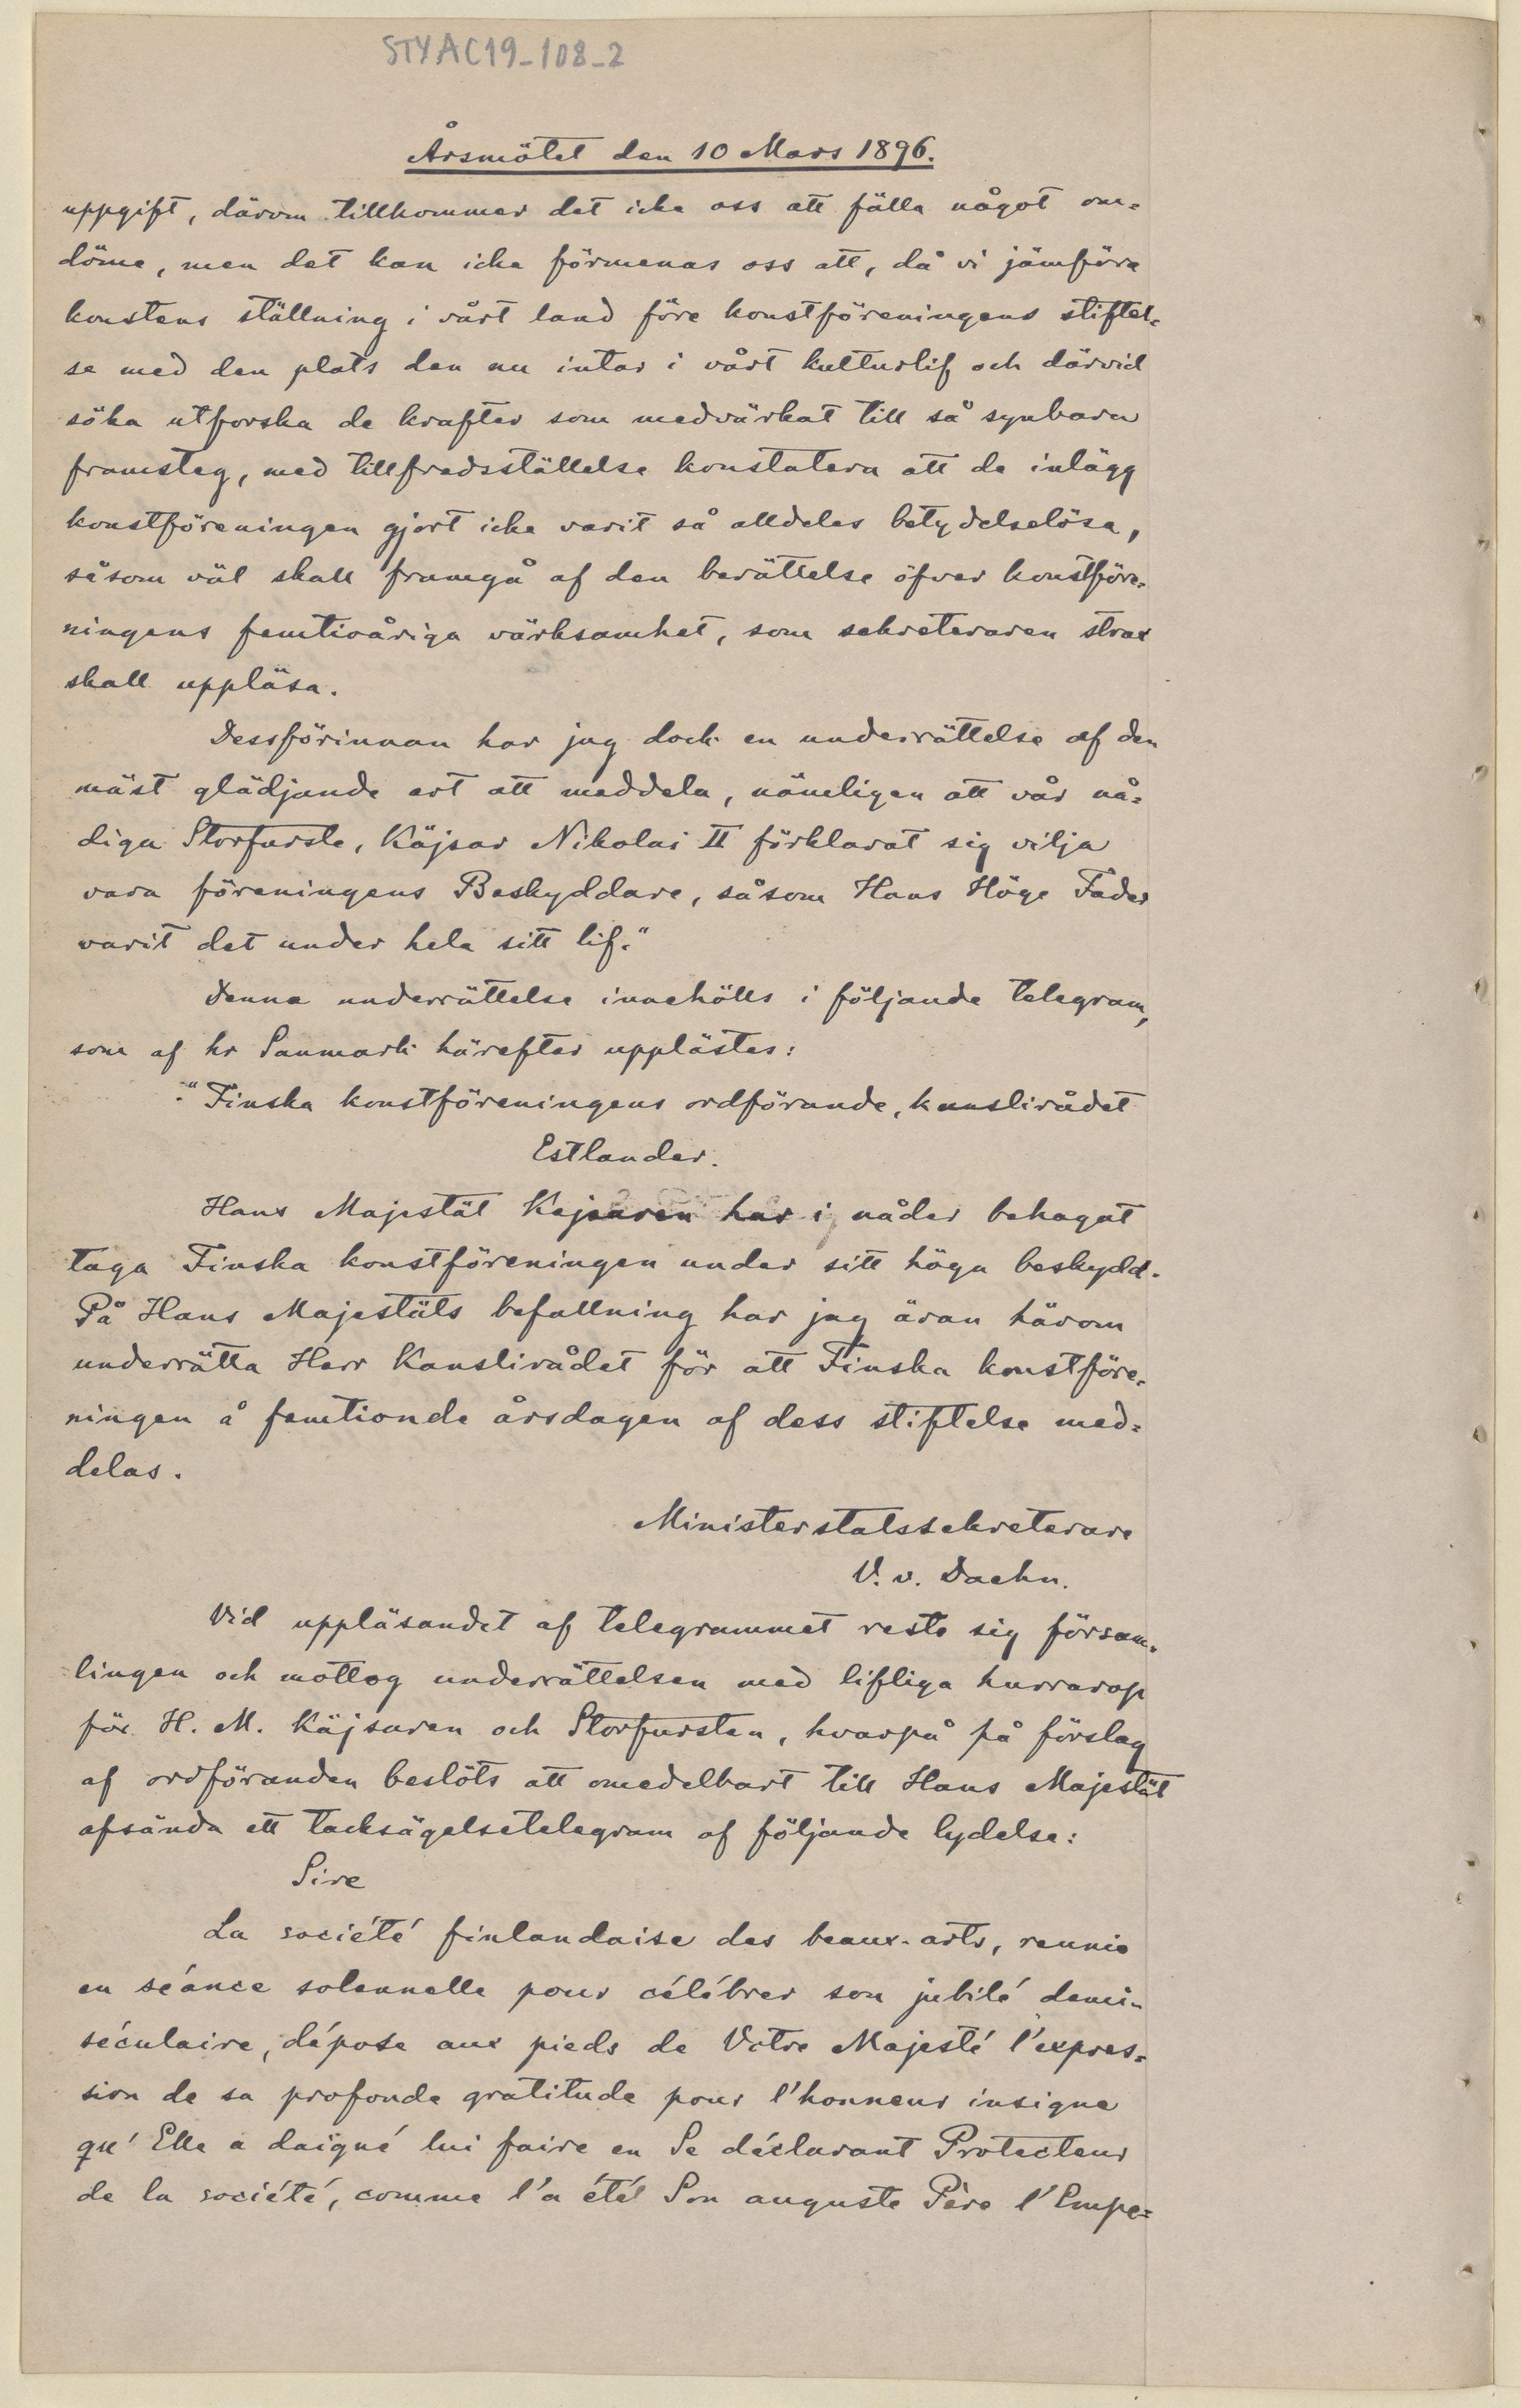 STYAC19-108-2
Årsmötet den 10 Mars 1896.
uppgift, därom tillkommer det icke oss att fälla något om=
döme, men det kan icke förmenas oss att, då vi jämföra
konstens ställning i vårt land före konstföreningens stiftel=
se med den plats den nu intar i vårt kulturlif och därvid
söka utforska de krafter som medvärkat till så synbara
framsteg, med tillfredsställelse konstatera att de inlägg
konstföreningen gjort icke varit så alldeles betydelselösa,
såsom väl skall framgå af den berättelse öfver konstföre=
ningens femtioåriga värksamhet, som sekreteraren strax
skall uppläsa.
Dessförinnan har jag dock en underrättelse af den
mäst glädjande art att meddela, nämligen att vår nå=
diga Storfurste, Käjsar Nikolai II förklarat sig vilja
vara föreningens Beskyddare, såsom Hans Höge Fader
varit det under hela sitt lif."
Denna underrättelse innehölls i följande telegram,
som af hr Sanmark härefter upplästes:
"Finska konstföreningens ordförande, kanslirådet
Estlander.
Hans Majestät Kejsaren har i nåder behagat
taga Finska konstföreningen under sitt höga beskydd.
På Hans Majestäts befallning har jag äran härom
underrätta Herr Kanslirådet för att Finska konstföre=
ningen å femtionde årsdagen af dess stiftelse med=
delas.
Ministerstatssekreterare
V. v. Daehn.
Vid uppläsandet af telegrammet reste sig försam=
lingen och mottog underrättelsen med lifliga hurrarop
för H. M. Käjsaren och Storfursten, hvarpå på förslag
af ordföranden beslöts att omedelbart till Hans Majestät
afsända ett tacksägelsetelegram af följande lydelse:
Sire
La société finlandaise des beaux-arts, reunie
en séance solennelle pour célébrer son jubilé demi=
séculaire, dépose aux pieds de Votre Majesté l'expres=
sion de sa profonde gratitude pour l'honneur insigne
qu'Elle a daigné lui faire en Se déclarant Protecteur
de la société, comme l'a été Son auguste Père l'Empe=